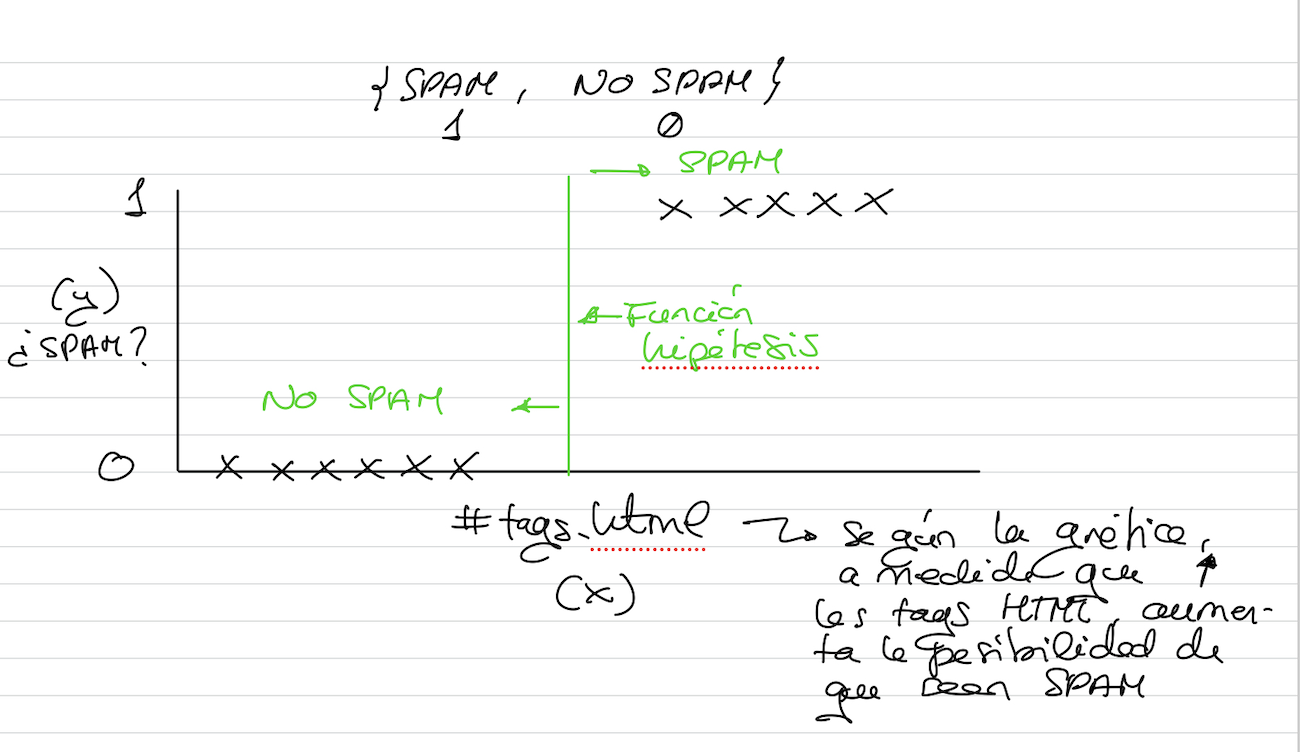 {SPAM, NO SPAM}
1 0
→ SPAM
1
x x x x x
(y)
¿SPAM?
← Función
hipótesis
NO SPAM ←
0
x x x x x x
#tags.html → Según la gráfica,
(x)
a medida que ↑
los tags HTML, aumen-
ta la posibilidad de
que sean SPAM